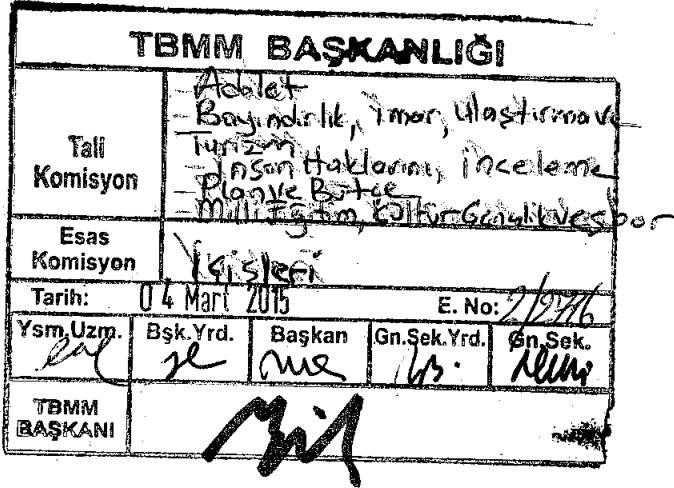 TBMM BAŞKANLIĞI
Tali Komisyon
- Adalet
- Bayındırlık, imar, Ulaştırma ve
Turizm
- İnsan Haklarını, inceleme
- Plan ve Bütçe
- Milli Eğitim, Kültür Gençlik ve Spor
Esas Komisyon
İçişleri
Tarih: 04 Mart 2015 E. No: 2/2716
Ysm.Uzm. Bşk.Yrd. Başkan Gn.Sek.Yrd. Gn.Sek.
TBMM
BAŞKANI